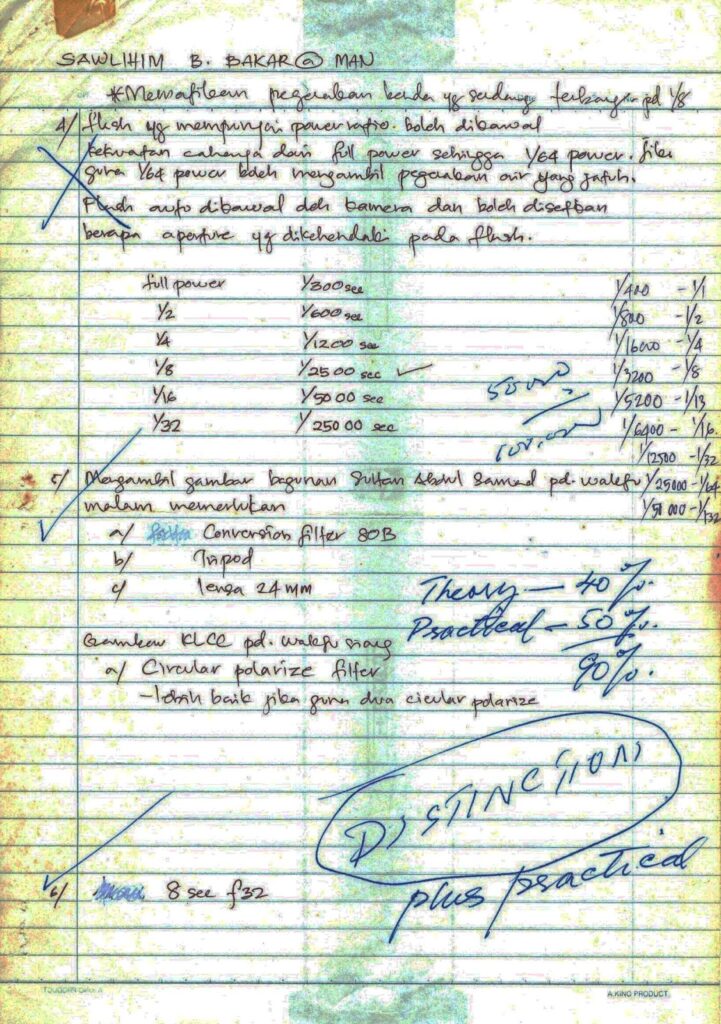 SAWLIHIM B. BAKAR @ MAN
* Mematikan pegerakan benda yg sedang terbang - pd 1/8
4/ flash yg mempunyai power ratio. boleh dibawal
kekuatan cahanya dari full power sehingga 1/64 power. jika
guna 1/64 power boleh mengambil pegerakan air yang jatuh.
Flash auto dibawal oleh kamera dan boleh disetkan
berapa aperture yg dikehendaki pada flash.
full power 1/300 sec 1/400 - 1/1
1/2 1/600 sec 1/800 - 1/2
1/4 1/1200 sec 1/1600 - 1/4
1/8 1/2500 sec ✓ 1/3200 - 1/8
1/16 1/5000 sec 50000 1/5200 - 1/13
1/32 1/25000 sec 100,000 1/6400 - 1/16.
1/12500 - 1/32
5/ Mengambil gambar bagunan Sultan Abdul Samad pd. waktu 1/25000 - 1/64
malam memerlukan 1/51000 - 1/132
a/ Conversion filter 80B
b/ Tripod
c/ lensa 24 mm
Theory — 40%.
Practical — 50%.
90%.
Gambar KLCC pd. waktu siang
a/ Circular polarize filter
- lebih baik jika guna dua cicular polarize
DISTINCTION
plus practical
6/ 8 sec f32
A.KING PRODUCT